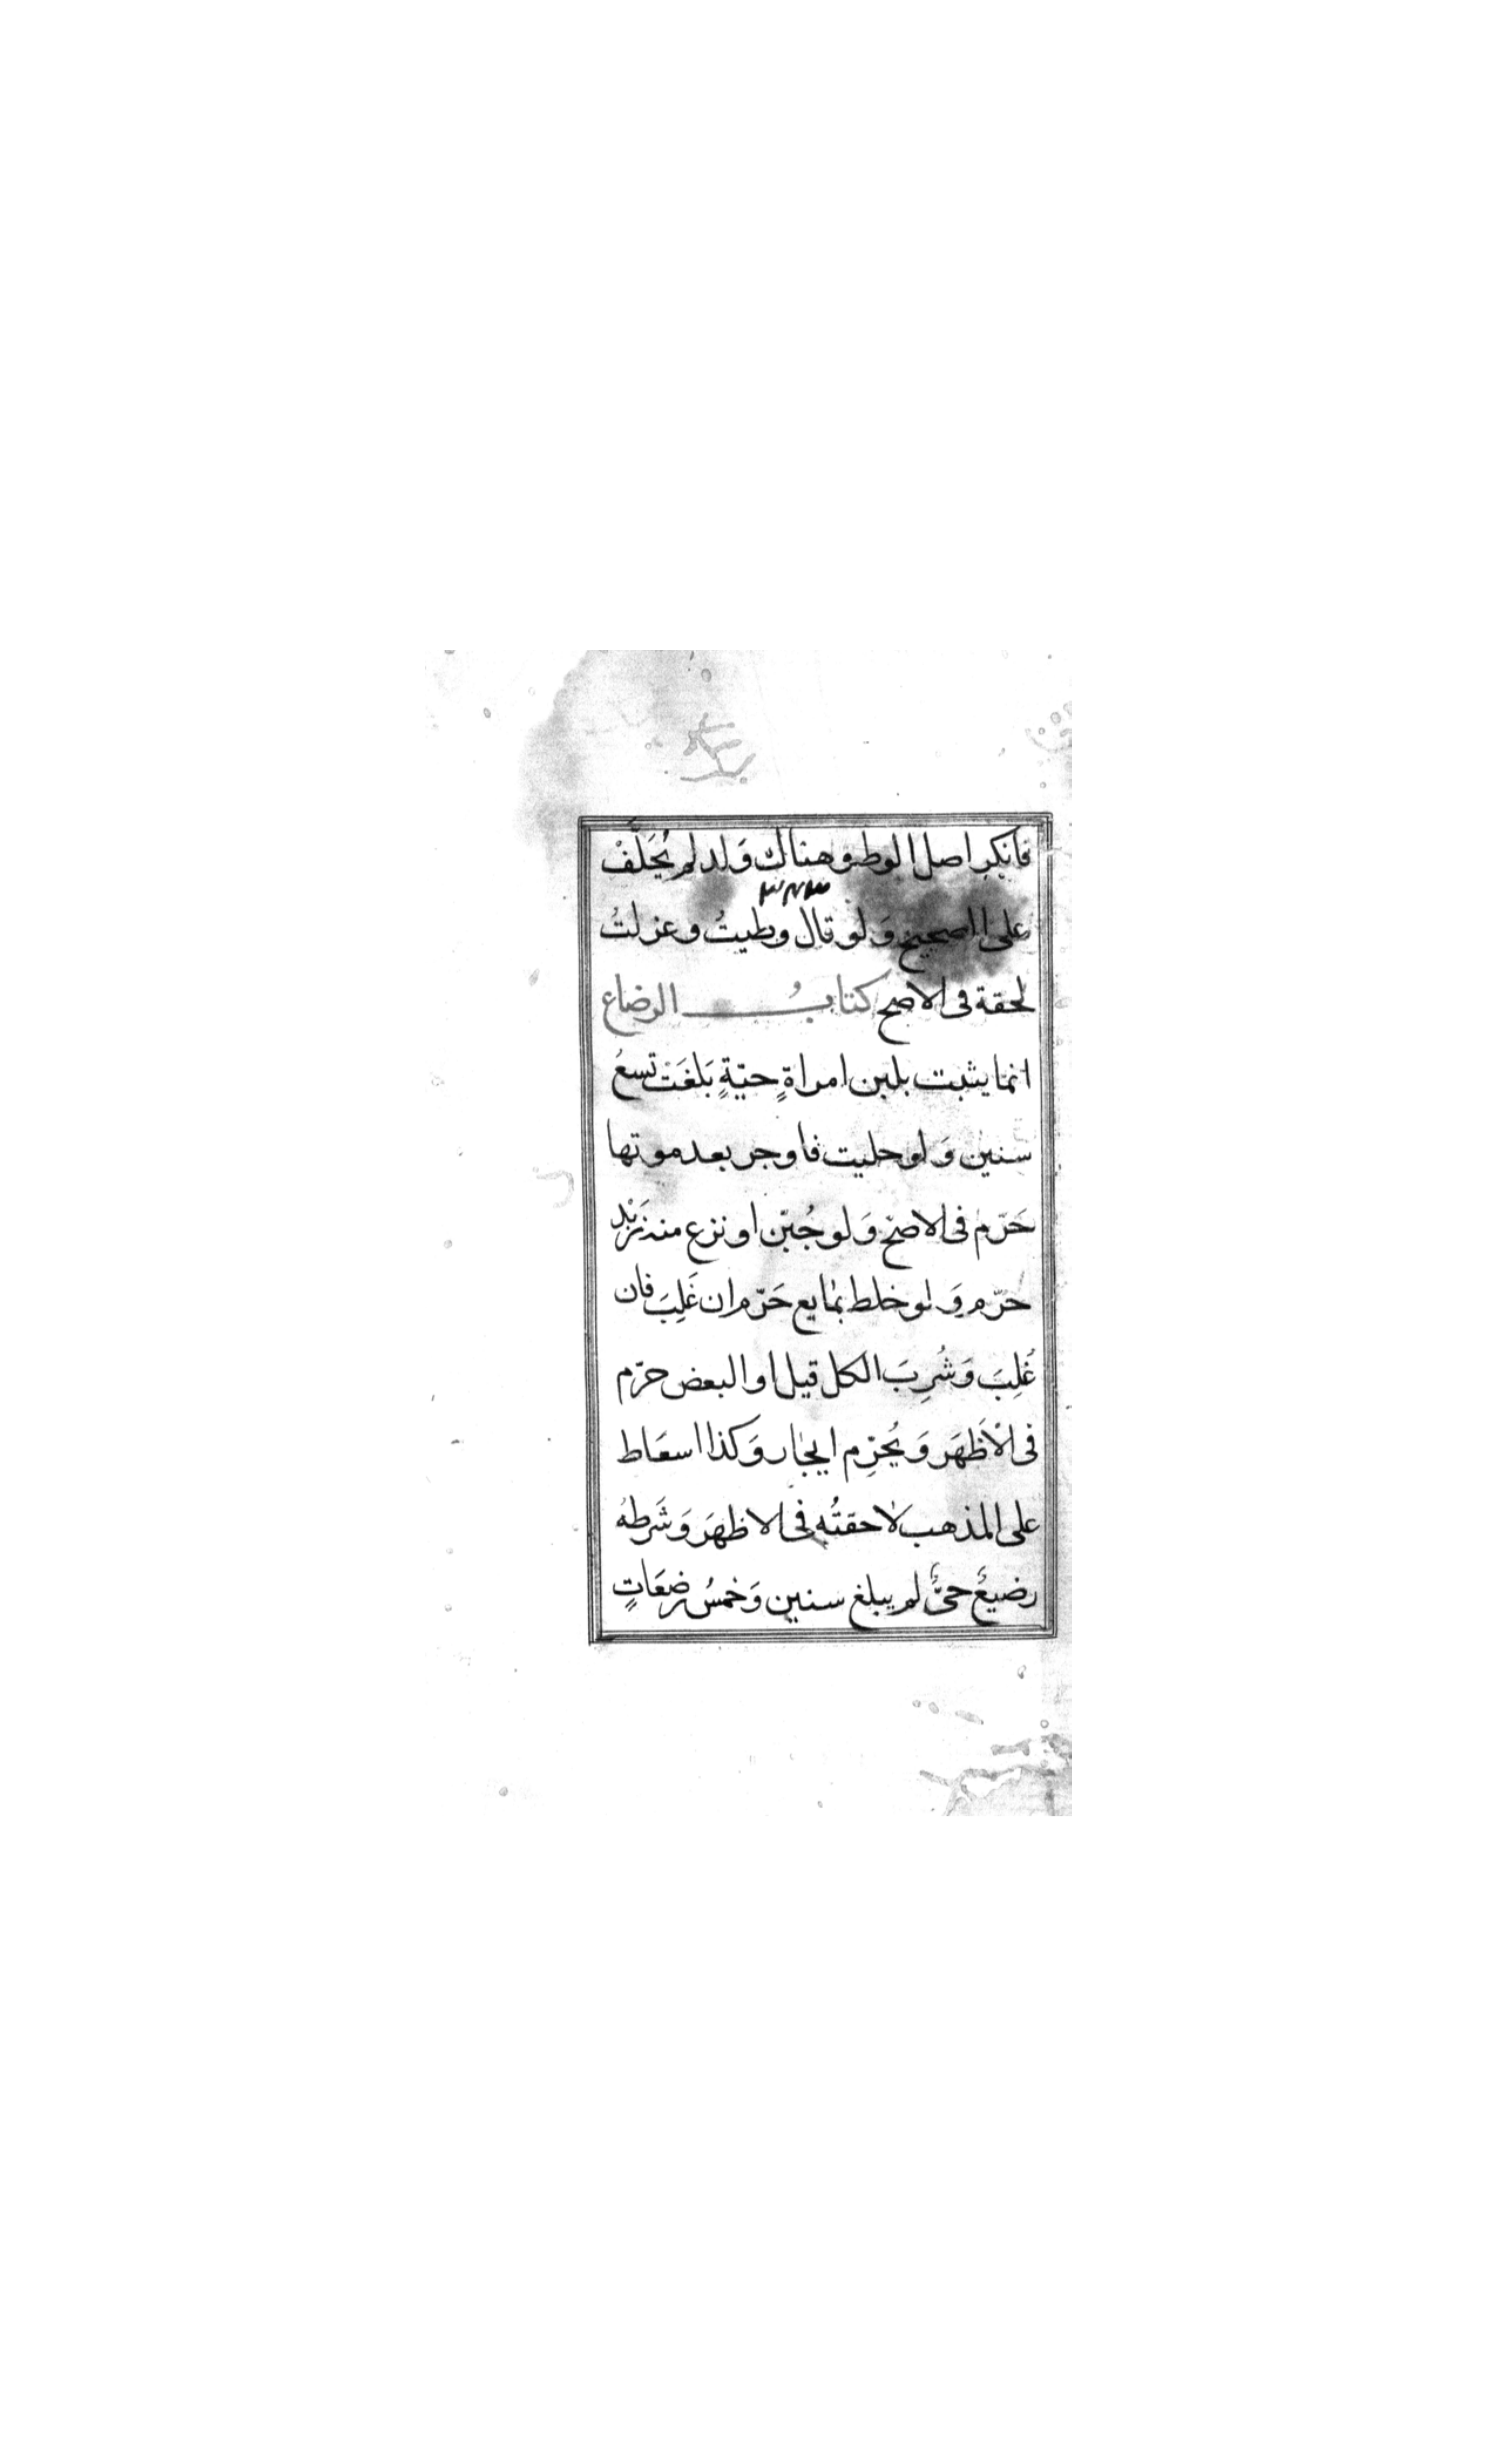 فانكر اصل الوطئ وهناك وَلد لم يُحَلَّفْ
على الصحيح وَلو قال وطيتُ وعزلتُ
لحقة فى الاصح كتابُ الرضاع
انما يثبت بلبن امراةٍ حيّةٍ بَلغَتْ تسعُ
سنين وَلوحليت فاوجر بعد موتها
حَرّم فى الاصحّ وَلو جُبّن او نزع منه زَبْد
حرّم وَلو خلط بمايع حَرّم ان غَلِبَ فان
غُلِبَ وَشُرِبَ الكل قيل او البعض حرّم
فى الْاَظهَر وَيُحرِّم ايجار وَكذا اسعَاط
على المذهب لاحقتُه فى الاظهَر وَشَرطهُ
رضيعٌ حىٌّ لم يبلغ سنين وَخمسُ رضعَاتٍ